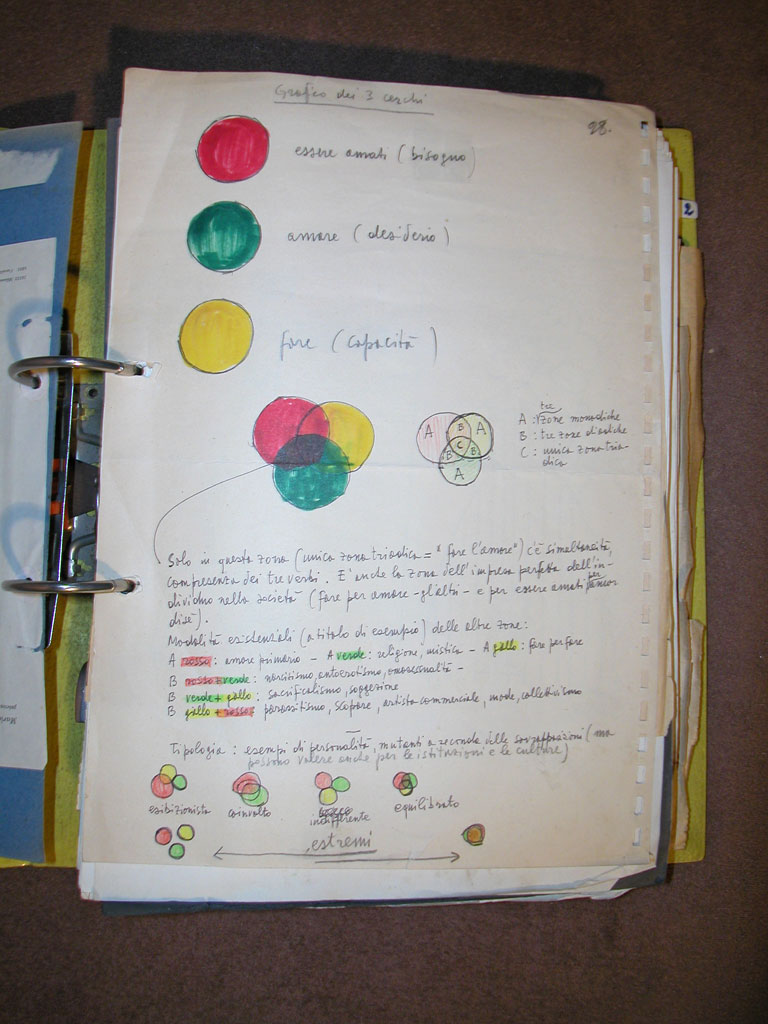 Grafico dei 3 cerchi
28.
essere amati (bisogno)
2
amare (desiderio)
fare (capacità)
A
B
A
C
B
B
A
tre
A : zone monadiche
B : tre zone diadiche
C : unica zona tria-
dica
Solo in questa zona (unica zona triadica = "fare l'amore") c'è simultaneità,
compresenza dei tre verbi. E' anche la zona dell'impresa perfetta dell'in-
dividuo nella società (fare per amore - gl'altri - e per essere amati per amor
di sé).
Modalità esistenziali (a titolo di esempio) delle altre zone:
A rosso: amore primario - A verde: religione, mistica - A giallo: fare per fare
B rosso + verde: narcisismo, autoerotismo, omosessualità -
B verde + giallo: sacrificalismo, soggezione
B giallo + rosso: parassitismo, scopare, artista commerciale, mode, collettivismo
Tipologia : esempi di personalità, mutanti a seconda delle sovrapposizioni (ma
possono valere anche per le istituzioni e le culture)
esibizionista coinvolto indifferente equilibrato
estremi